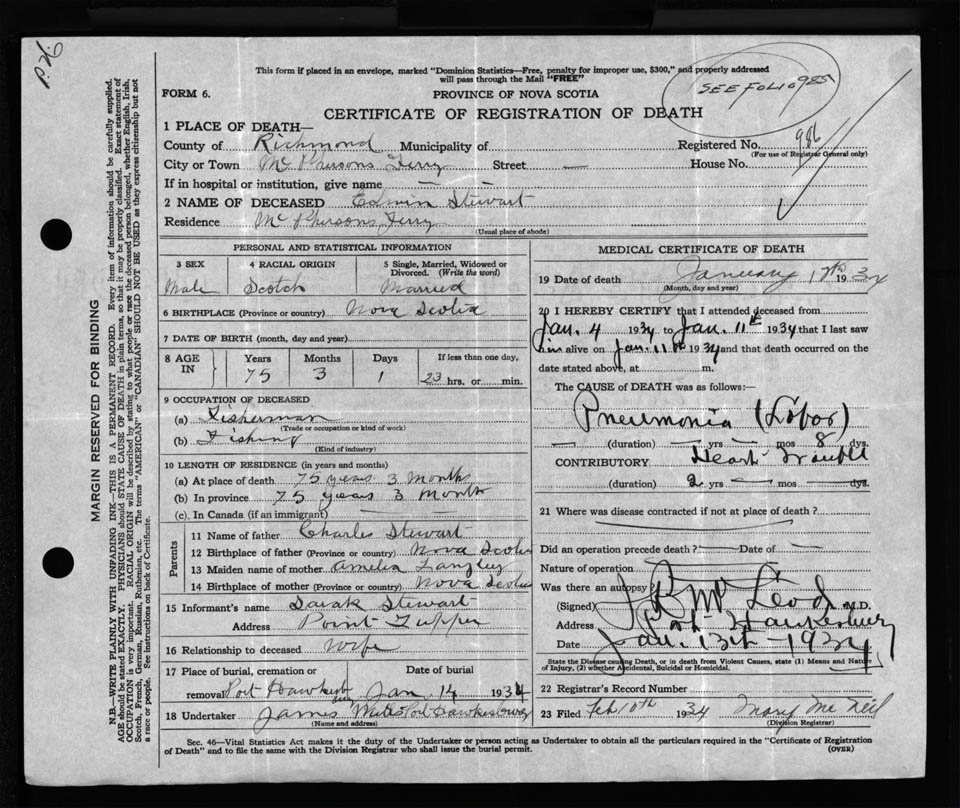 P. 26
This form if placed in an envelope, marked "Dominion Statistics—Free, penalty for improper use, $300," and properly addressed
will pass through the Mail "FREE"
SEE FOLIO 985
FORM 6.
PROVINCE OF NOVA SCOTIA
CERTIFICATE OF REGISTRATION OF DEATH
1 PLACE OF DEATH—
County of Richmond Municipality of Registered No. 986
(For use of Registrar General only)
City or Town McPhersons Ferry Street — House No.
If in hospital or institution, give name — —
2 NAME OF DECEASED Edwin Stewart
Residence McPhersons Ferry
(Usual place of abode)
PERSONAL AND STATISTICAL INFORMATION
3 SEX 4 RACIAL ORIGIN 5 Single, Married, Widowed or Divorced. (Write the word)
Male Scotch Married
6 BIRTHPLACE (Province or country) Nova Scotia
7 DATE OF BIRTH (month, day and year)
8 AGE IN Years Months Days If less than one day,
75 3 1 23 hrs. or min.
9 OCCUPATION OF DECEASED
(a) Fisherman
(Trade or occupation or kind of work)
(b) Fishing
(Kind of industry)
10 LENGTH OF RESIDENCE (in years and months)
(a) At place of death 75 years 3 Months
(b) In province 75 years 3 Month
(c). In Canada (if an immigrant)
Parents
11 Name of father Charles Stewart
12 Birthplace of father (Province or country) Nova Scotia
13 Maiden name of mother Amelia Langley
14 Birthplace of mother (Province or country) Nova Scotia
15 Informant's name Sarah Stewart
Address Point Tupper
16 Relationship to deceased Wife
17 Place of burial, cremation or removal Date of burial
Port Hawkesbury Jan. 14 1934
18 Undertaker James Port Hawkesbury
(Name and address)
MEDICAL CERTIFICATE OF DEATH
19 Date of death January 12th 1934
(Month, day and year)
20 I HEREBY CERTIFY that I attended deceased from
Jan. 4 1934 to Jan. 11th 1934 that I last saw
him alive on Jan. 11th 1934 and that death occurred on the
date stated above, at m.
The CAUSE OF DEATH was as follows:—
Pneumonia (Lobar)
— (duration) — yrs — mos 8 dys.
CONTRIBUTORY Heart Trouble
(duration) 2 yrs — mos — dys.
21 Where was disease contracted if not at place of death?
Did an operation precede death? — Date of —
Nature of operation
Was there an autopsy
(Signed) McLeod M.D.
Address Port Hawkesbury
Date Jan. 13th 1934
State the Disease causing Death, or in death from Violent Causes, state (1) Means and Nature
of Injury, (2) whether Accidental, Suicidal or Homicidal.
22 Registrar's Record Number
23 Filed Feb 10th 1934 Mary McNeil
(Division Registrar)
Sec. 46—Vital Statistics Act makes it the duty of the Undertaker or person acting as Undertaker to obtain all the particulars required in the "Certificate of Registration
of Death" and to file the same with the Division Registrar who shall issue the burial permit.
(OVER)
MARGIN RESERVED FOR BINDING
N.B.—WRITE PLAINLY WITH UNFADING INK—THIS IS A PERMANENT RECORD. Every item of information should be carefully supplied.
AGE should be stated EXACTLY. PHYSICIANS should STATE CAUSE OF DEATH in plain terms, so that it may be properly classified. Exact statement of
OCCUPATION is very important. RACIAL ORIGIN will be described by stating to what people or race the deceased person belonged, whether English, Irish,
Scotch, French, German, Russian, Ruthenian, etc. The terms "AMERICAN" or "CANADIAN" SHOULD NOT BE USED as they express citizenship but not
a race or people. See instructions on back of Certificate.